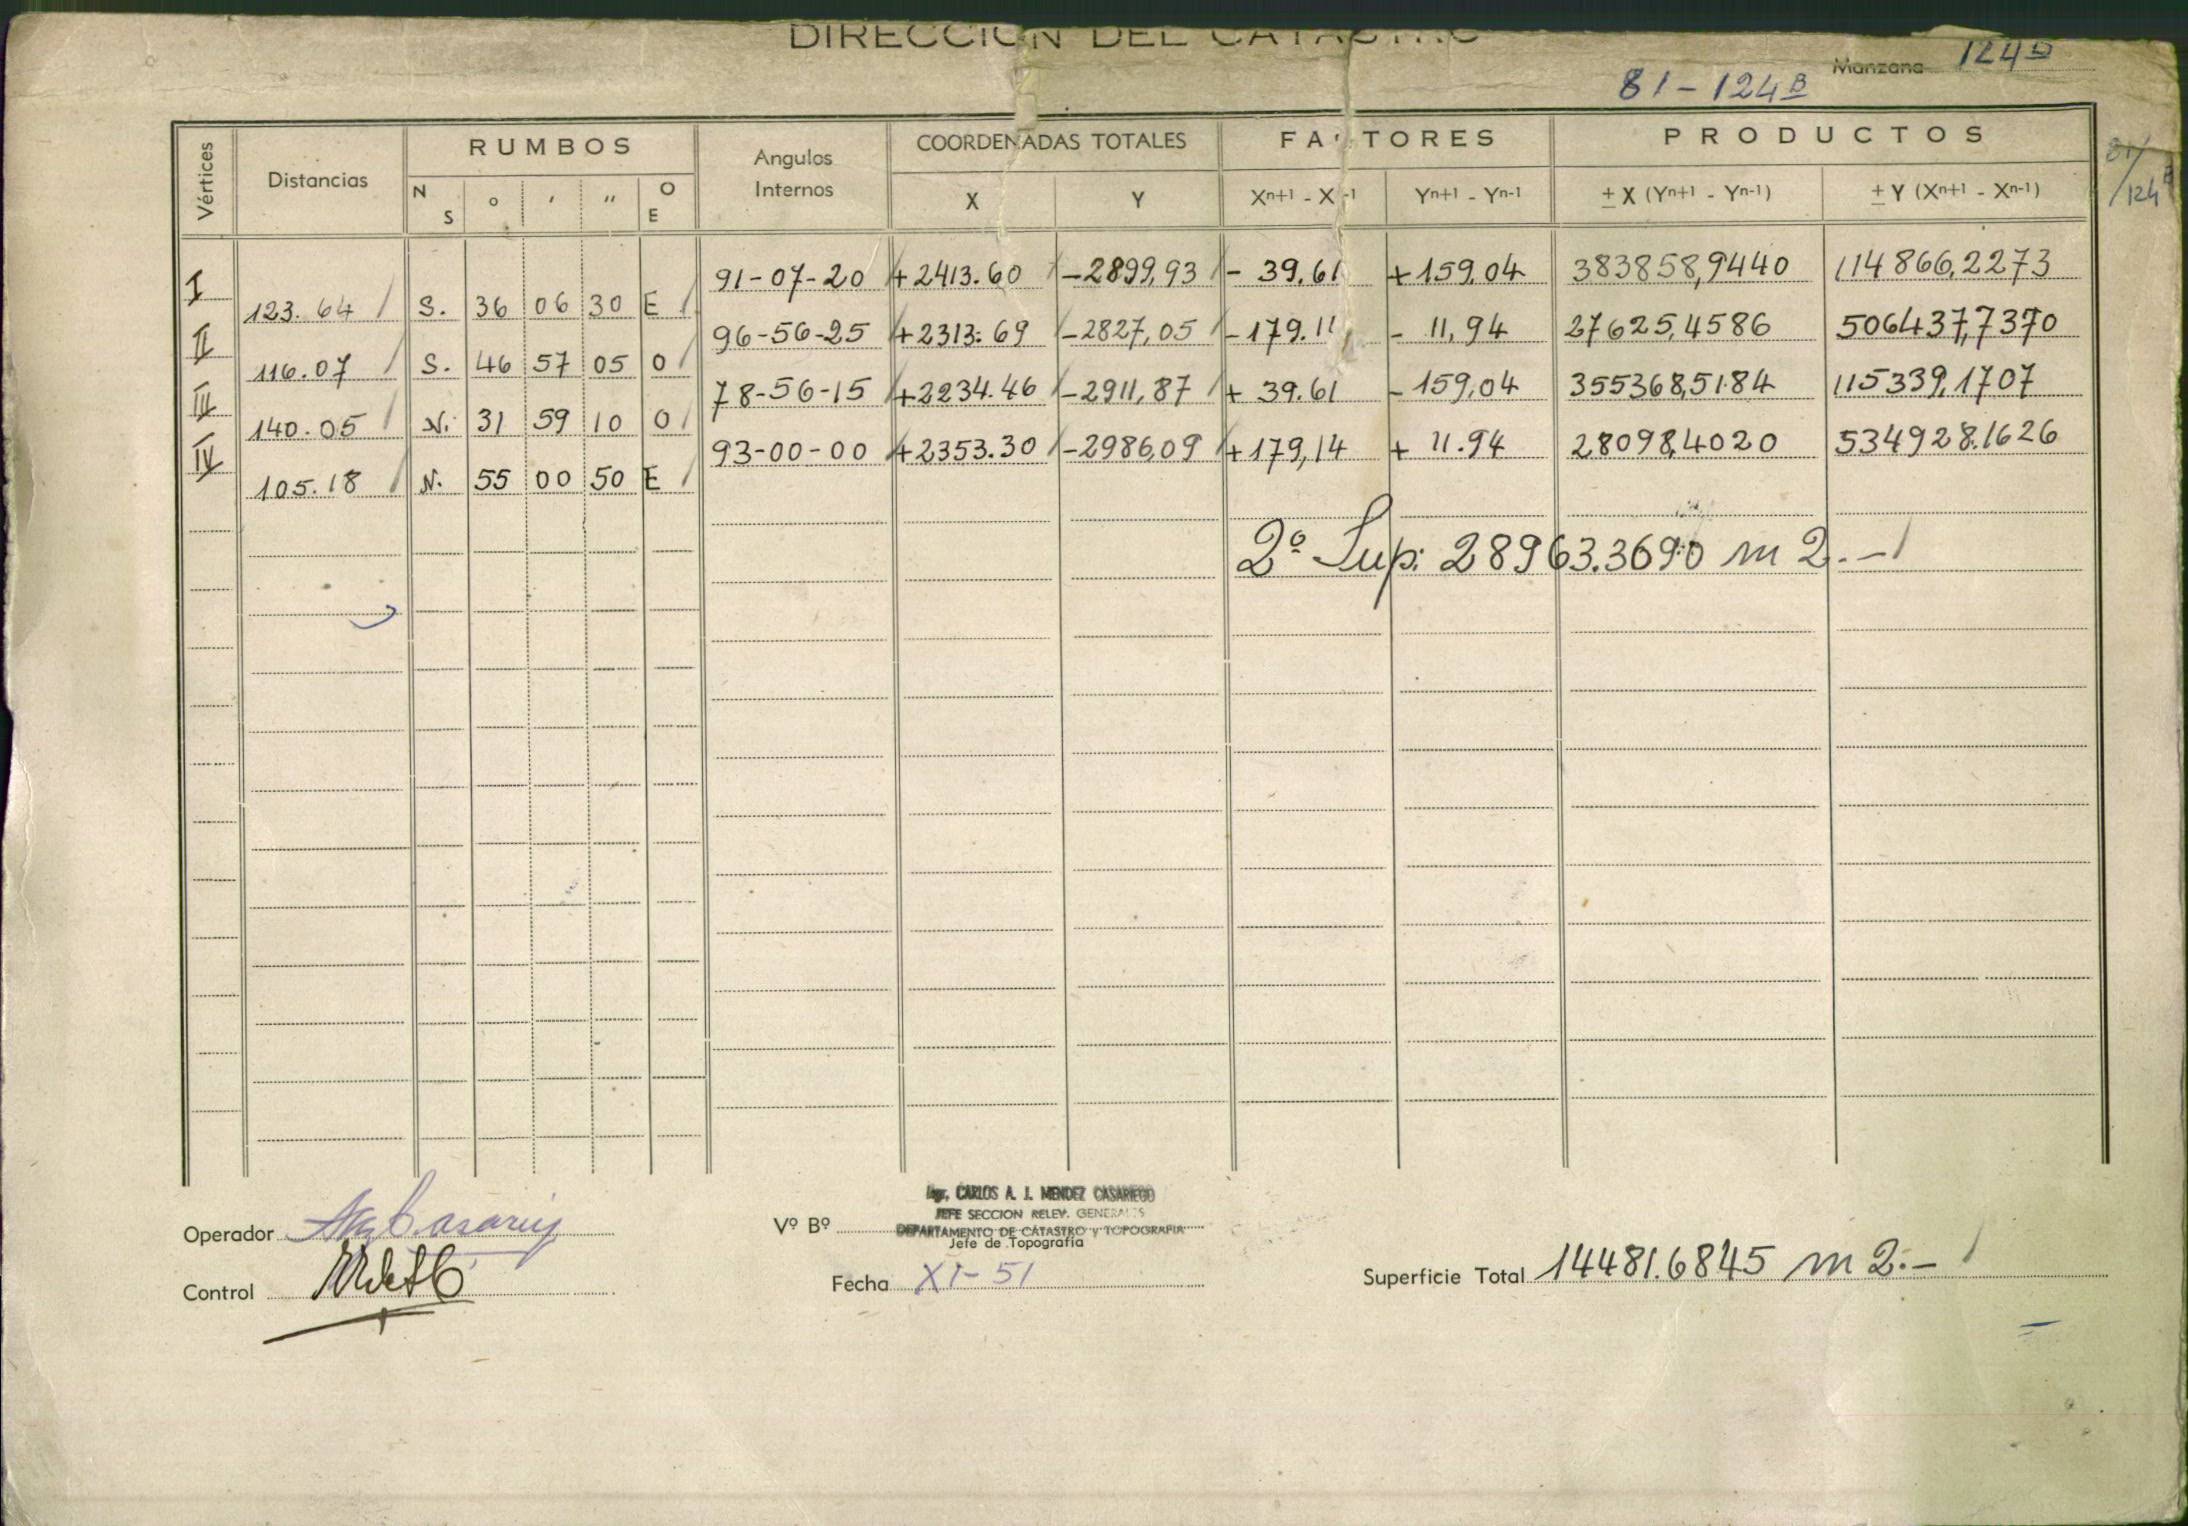 DIRECCION DEL CATASTRO
Manzana 124B
81-124B
81/124B
Vértices Distancias RUMBOS Angulos Internos COORDENADAS TOTALES FACTORES PRODUCTOS
N S ° ' " O E X Y Xn+1 - Xn-1 Yn+1 - Yn-1 ± X (Yn+1 - Yn-1) ± Y (Xn+1 - Xn-1)
I 91-07-20 +2413.60 -2899,93 - 39.61 +159,04 383858,9440 114866,2273
123.64 S. 36 06 30 E
II 96-56-25 +2313.69 -2827,05 -179.11 - 11,94 27625,4586 506437,7370
116.07 S. 46 57 05 O
III 78-56-15 +2234.46 -2911,87 + 39.61 - 159,04 355368,5184 115339,1707
140.05 N. 31 59 10 O
IV 93-00-00 +2353.30 -2986,09 +179,14 + 11.94 28098,4020 534928.1626
105.18 N. 55 00 50 E
2º Sup: 28963.3690 m2.-
Ing. CARLOS A. J. MENDEZ CASARIEGO
JEFE SECCION RELEV. GENERALES
DEPARTAMENTO DE CATASTRO y TOPOGRAFIA
Operador Vº Bº
Jefe de Topografía
Control Fecha XI-51 Superficie Total 14481.6845 m2.-